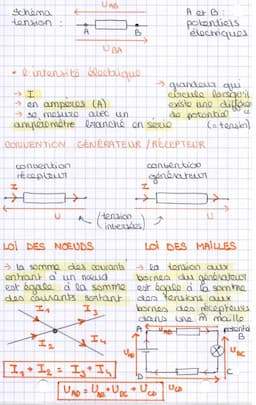 Schéma tension :
U_AB
A B
U_BA
A et B : potentiels électriques
• l'intensité électrique
→ I
→ en ampères (A)
→ se mesure avec un ampèremètre branché en série
→ grandeur qui circule lorsqu'il existe une différ de potentiel (= tension)
CONVENTION GÉNÉRATEUR / RÉCEPTEUR
convention récepteur
convention générateur
I
U
(tension inversées)
I
U
LOI DES NOEUDS
→ la somme des courants entrant à un noeud est égale à la somme des courants sortant
I₁ I₃
I₂ I₄
I₁ + I₂ = I₃ + I₄
LOI DES MAILLES
→ la tension aux bornes du générateur est égale à la somme des tensions aux bornes des récepteurs dans une m̂ maille
A
potentiel B
U_AD
U_BC
D C
U_CD
U_AD = U_AB + U_BC + U_CD